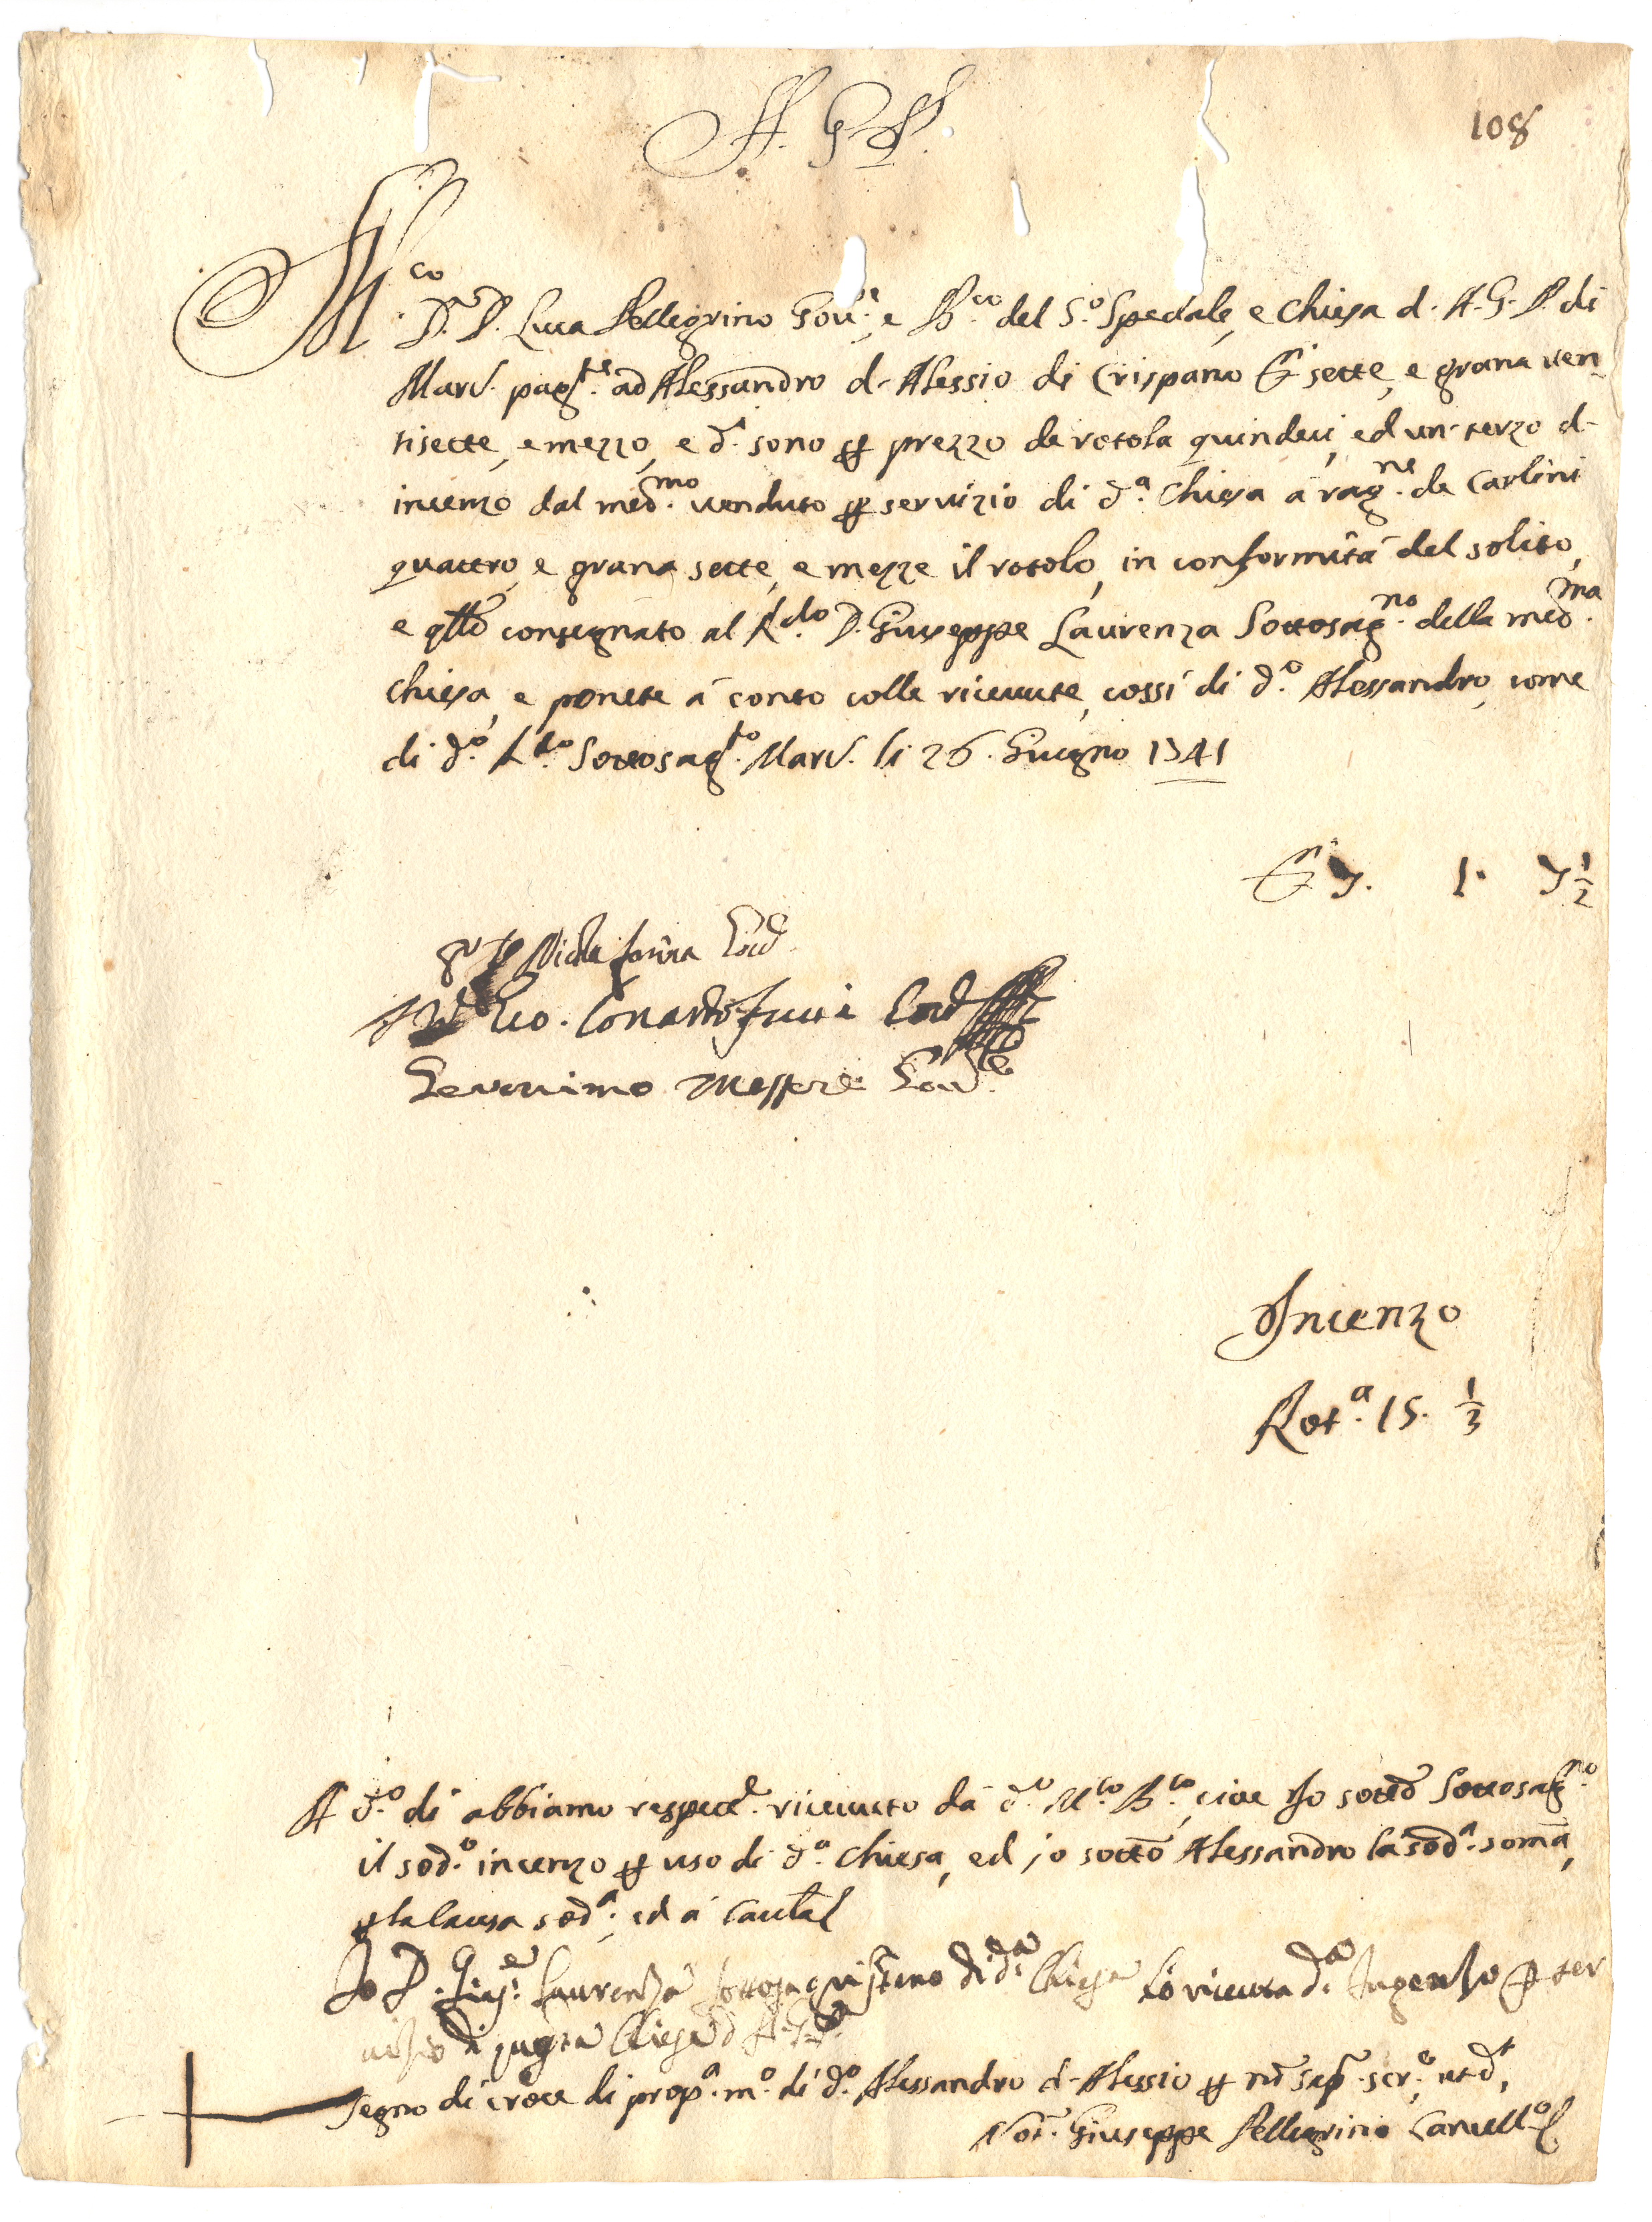 A. G. P.
108
M.co D.r D. Luca Pellegrino Gov.e, e B.co del S.o Spedale, e Chiesa d. A. G. P. di
Mard. pag.te ad Alessandro d'Alessio di Crispano D.ti sette, e grana ven-
tisette, e mezzo, e d.i sono per prezzo de rotola quindeci, ed un terzo d'
incenzo dal med.mo venduto per servizio di d.a Chiesa à rag.ne de Carlini
quattro, e grana sette, e mezze il rotolo, in conformità del solito,
e qllo consegnato al R.do D. Giuseppe Laurenza Sottosag.no della med.ma
Chiesa, e ponete à conto colle ricevute, cossì di d.o Alessandro, come
di d.o R.do Sottosag.no Mard. li 26. Giugno 1741
D.ti 7. 1. 7 1/2
Gov.
Geronimo Messere Gov.re
Incenzo
Rot.a 15. 1/3
A d.o dì abbiamo respect. ricevuto dà d.o M.co B.co, cioè Io sotto Sottosag.no
il sod.o incenzo per uso di d.a Chiesa, ed io sotto Alessandro la sod.a soma,
per la causa sod.a, ed à cautel
Io D. Gius.e Laurenza sottosagristano di d.a Chiesa ò ricevuta d. Ingenso per ser
visio di questa Chiesa d A. G. P.
Segno di croce di prop.a m.o di d.o Alessandro d'Alessio per nō sap. scr.e, ut d.t,
Not. Giuseppe Pellegrino Cancell.o